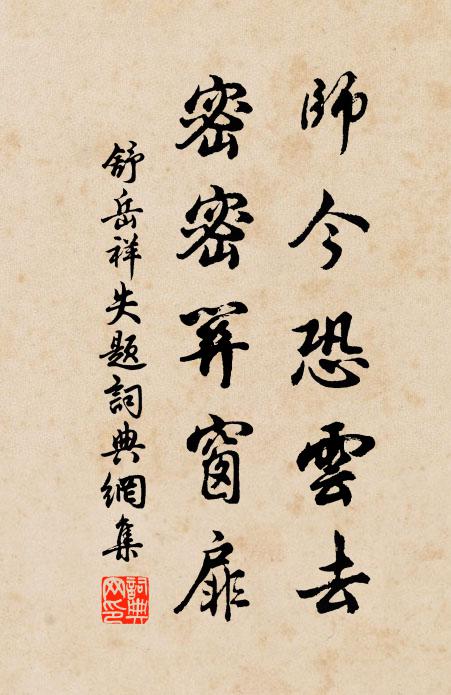 師今恐雲去
密密關窗扉
舒岳祥失題詞典網集
詞典
网印